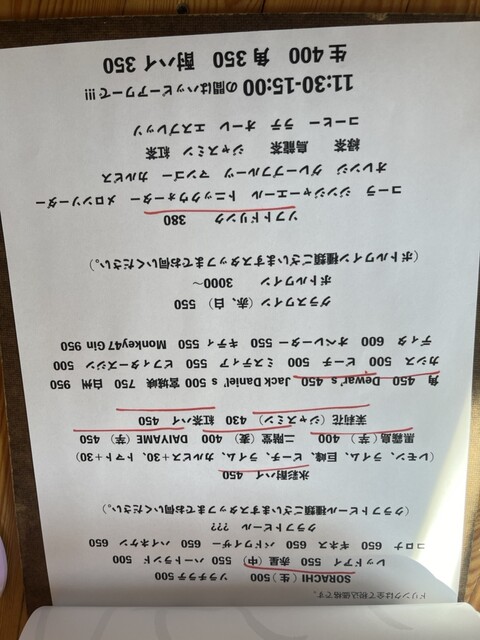 ドリンクは全て税込価格です。
SORACHI（生）500　ソラチラチ 500
レッドアイ 550　赤星（中）550　ハートランド 500
コロナ 650　ギネス 650　バドワイザー 650　ハイネケン 650
クラフトビール ???
（クラフトビール種類ございますスタッフまでお伺いください。）
氷彩酎ハイ 450
（レモン、ライム、巨峰、ピーチ、ライム、カルピス+30、トマト+30）
黒霧島（芋）400　二階堂（麦）400　DAIYAME（芋）450
茉莉花（ジャスミン）430　紅茶ハイ 450
角 450　Dewar's 450　Jack Daniel's 500　宮城峡 750　白州 950
カシス 500　ピーチ 500　ミスティア 550　ビフィタージン 500
ディタ 600　オペレーター 550　キティ 550　Monkey47 Gin 950
グラスワイン（赤、白）550
ボトルワイン 3000～
（ボトルワイン種類ございますスタッフまでお伺いください。）
ソフトドリンク 380
コーラ　ジンジャーエール　トニックウォーター　メロンソーダー
オレンジ　グレープフルーツ　マンゴー　カルピス
緑茶　烏龍茶　ジャスミン　紅茶
コーヒー　ラテ　オーレ　エスプレッソ
11:30-15:00 の間はハッピーアワーで!!!
生 400　角 350　酎ハイ 350